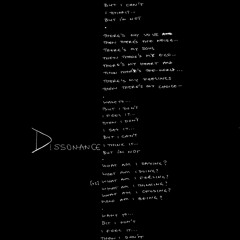 But I can't
I think it...
But I'm not
-
There's my voice and
Then there's the
There's my song
Then there's the
There's my heart and
Then there's the world...
There's my
Then there's my choice...
-
Want it...
But I don't
I feel it...
Then I don't
I say it...
But I can't
I think it...
But I'm not
-
Dissonance
What am I saying?
What am I doing?
[is] What am I feeling?
What am I thinking?
What am I choosing?
Who am I being?
-
Want it...
But I don't
I feel it...
Then I don't